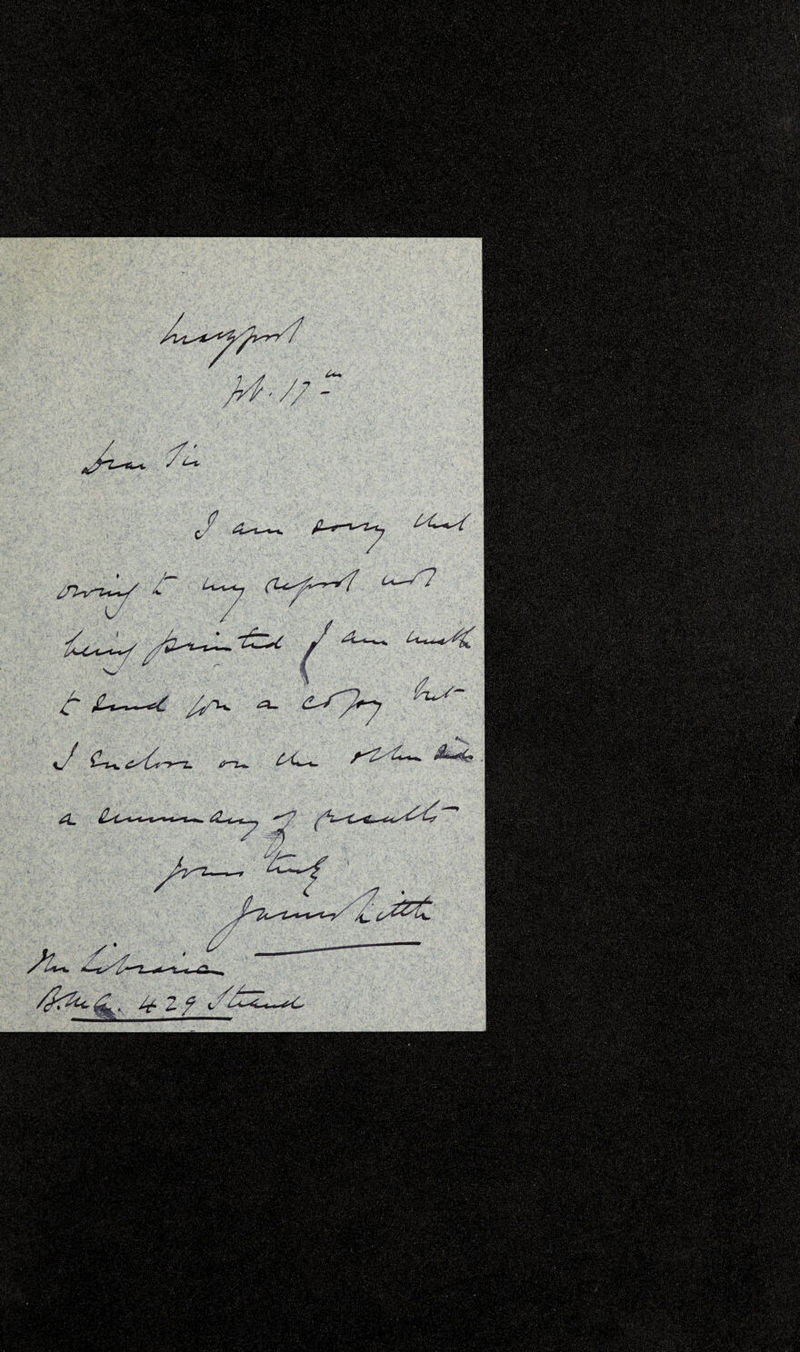 Maryport
Feb. 17th
Dear Sir
I am sorry that
owing to my report not
being printed I am unable
to send you a copy but
I enclose on the other side
a summary of results
Yours truly
James Little
The Librarian
B.M.A. 429 Strand